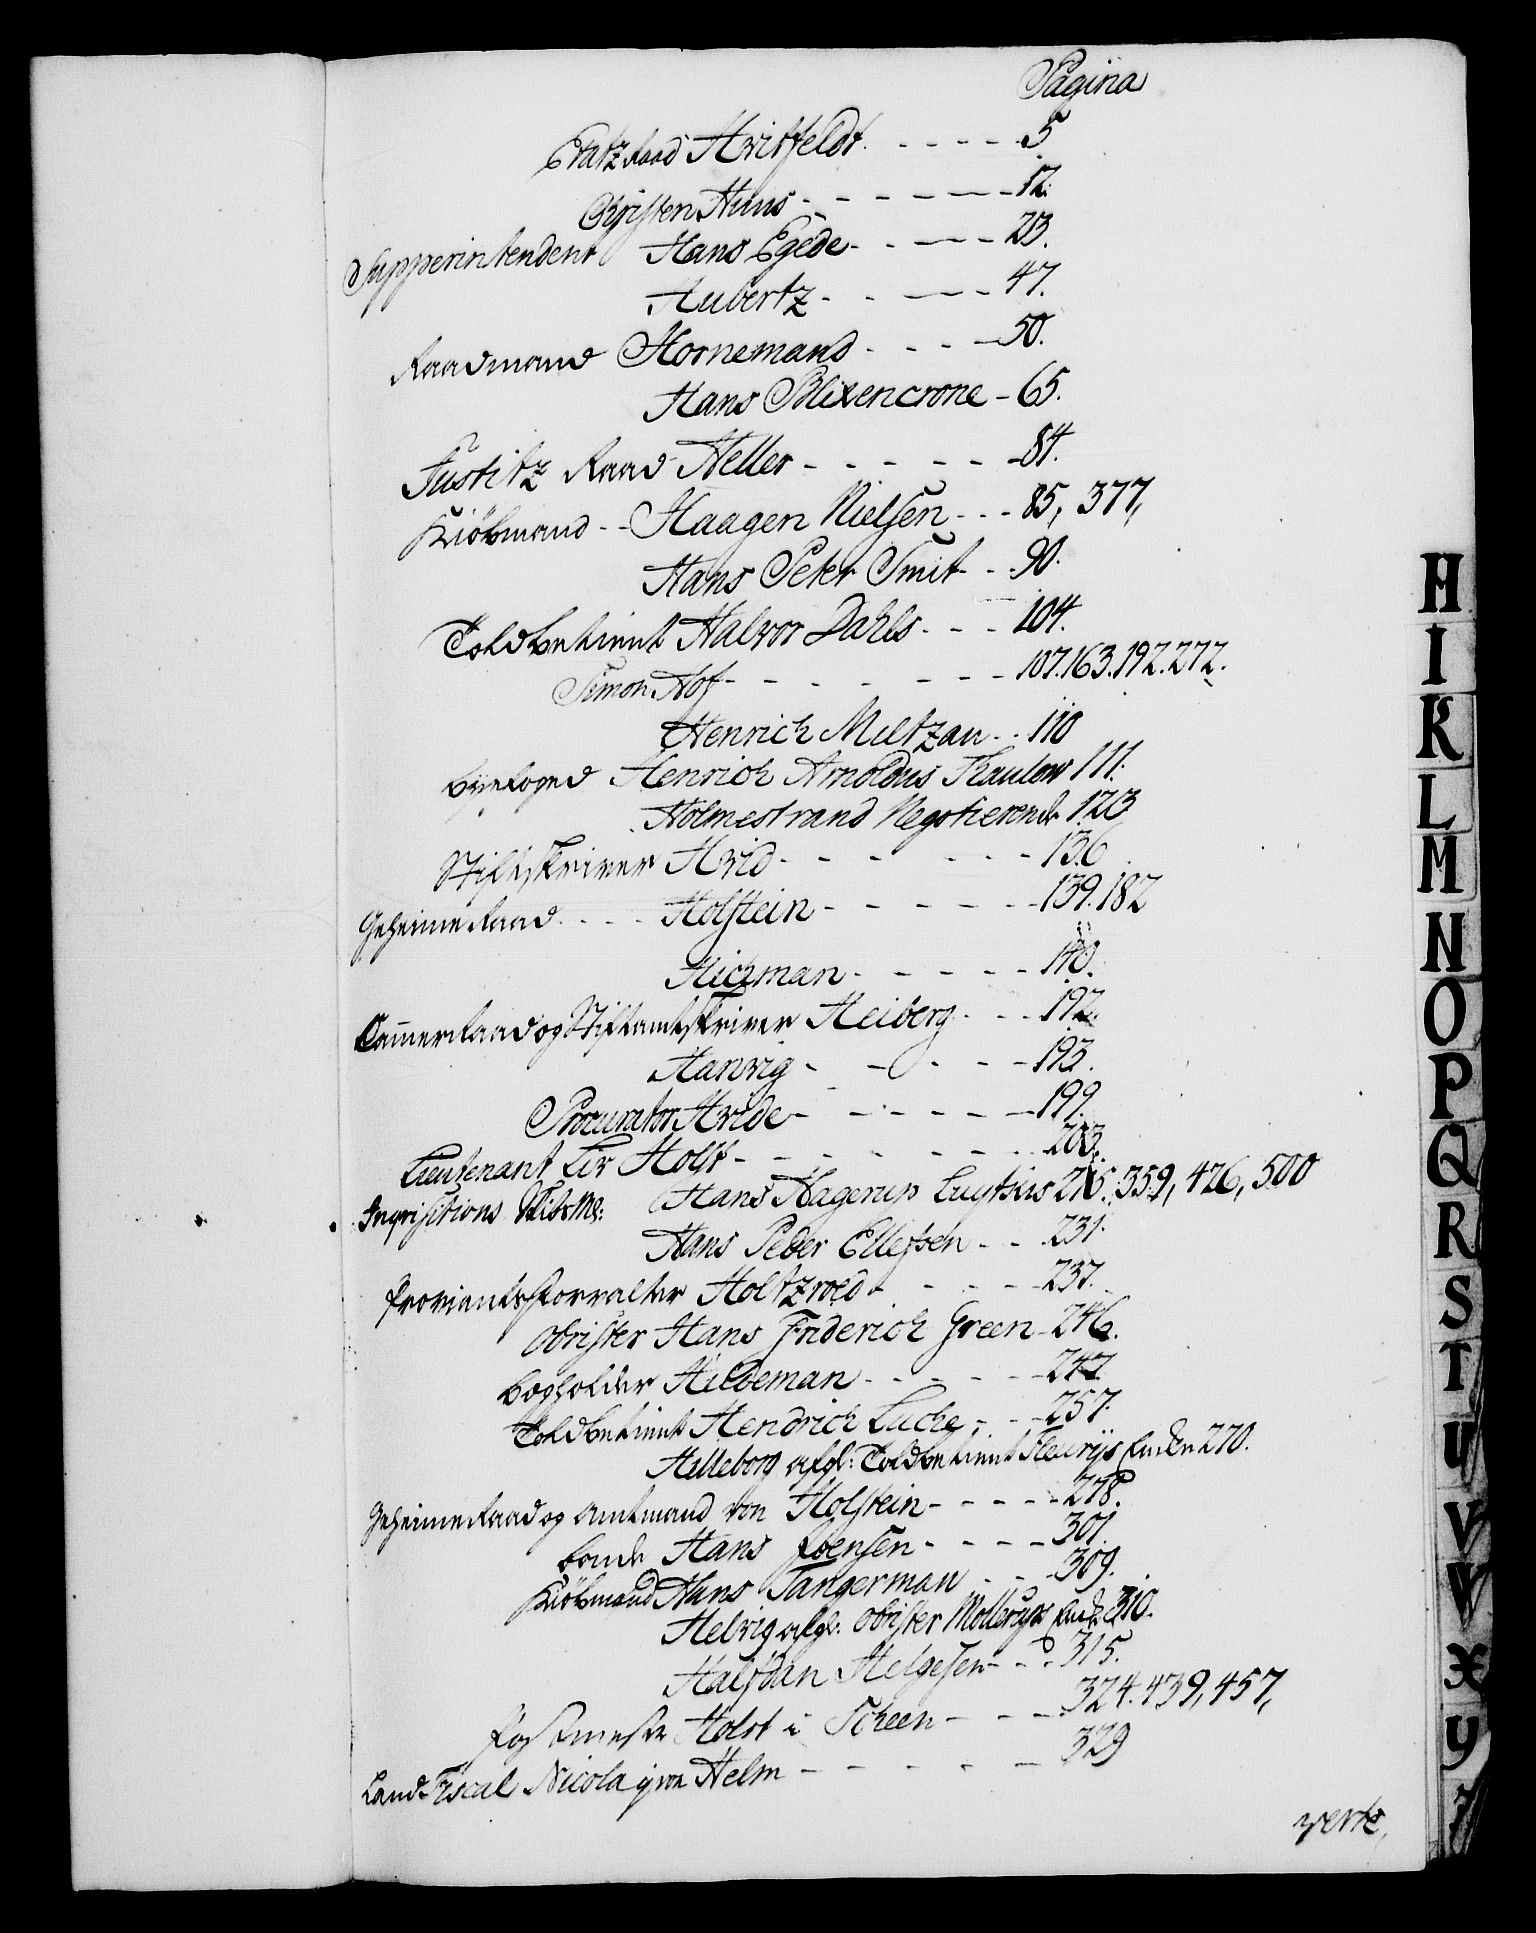 Pagina
Etatz Raad Hvitfeldt. - - - - 5
Christen Huus - - - - - - 12.
Supperintendent Hans Egede - - - - 23.
Hubertz - - - - 47.
Raadmand Hornemand - - - - 50.
Hans Blixencrone - 65.
Justitz Raad Heller - - - - - 84.
Kiöbmand - - Haagen Nielsen - - - 85, 377,
Hans Peter Smit - - 90.
Toldbetient Halvor Dahls - - - 104.
Simon Hof - - - - - - - 107. 163. 192. 272.
Henrich Meltzau - - 110
Byefoged Henrich Arnoldus Thaulow 111.
Holmestrand Negotierende 123
Stiftskriver Hvid - - - - - - 136
Geheime Raad - - - - Holstein - - - - - - 139. 182
Hichman - - - - - 140.
Cammer Raad og Stiftamtskriver Heiberg - - - 192.
Hanvig - - - - - 193.
Procurator Hvide - - - - - - 199.
Lieutenant Holst - - - - - - - 203.
Inqvisitions Hans Hagerup Luytkis 215, 359, 426, 500
Hans Peder Ellefsen - - - 231.
Proviantsforvalter Holtzroed - - - - 237.
Obrister Hans Friderich Green - 246.
Bogholder Hildeman - - - - - 247.
Toldbetient Hendrich Luche - - - 257.
Helleborg afgl: Toldbetient Fleurijs Encke 270.
Geheime Raad og Amtmand von Holstein - - - - - 278.
Bonde Hans Joensen - - - - - 301
Kiöbmand Hans Tangerman - - - 309.
Helvig afgl: Obrister Möllerups Encke 310.
Halfdan Helgesen - - - 315.
Postmester Holst i Scheen - - - - 324. 439, 457,
Land-Fiscal Nicolay von Helm - - - - - - 329
verte,
H
I
K
L
M
N
O
P
Q
R
S
T
U
V
W
X
Y
Z